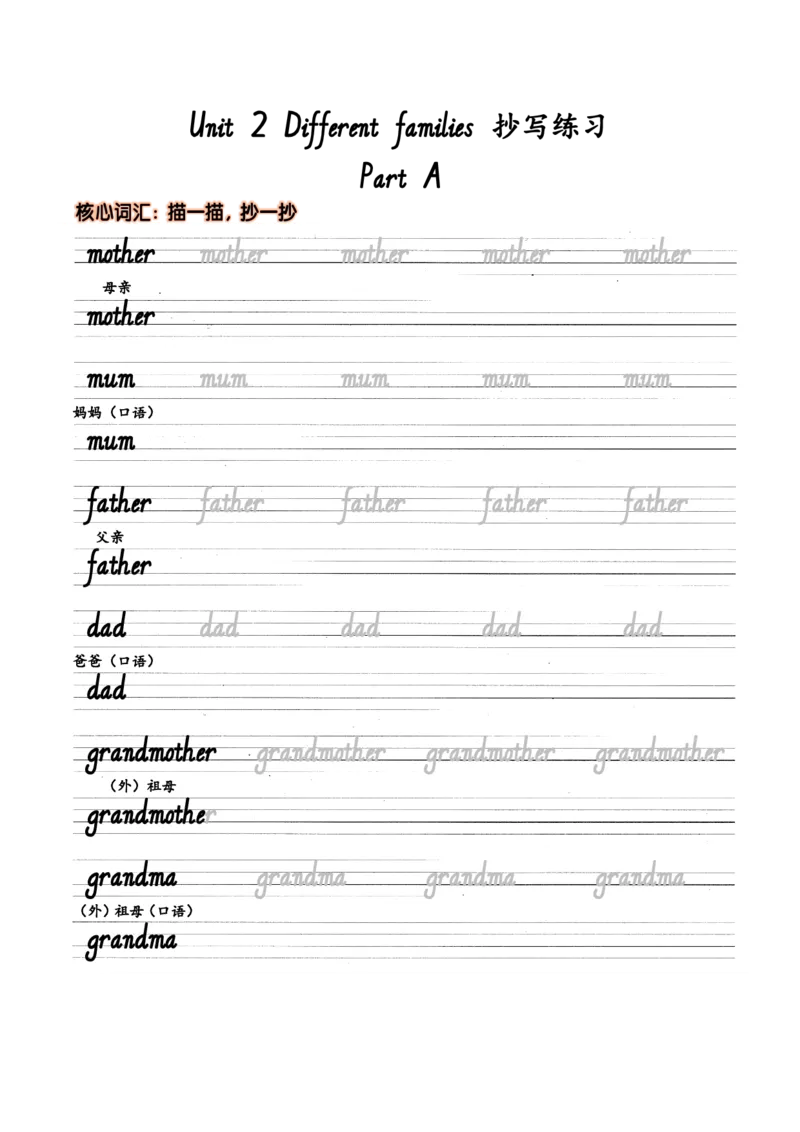 Unit 2 Different families 抄写练习
Part A
核心词汇：描一描，抄一抄
mother mother mother mother mother
母亲
mother
mum mum mum mum mum
妈妈（口语）
mum
father father father father father
父亲
father
dad dad dad dad dad
爸爸（口语）
dad
grandmother grandmother grandmother grandmother
（外）祖母
grandmother
grandma grandma grandma grandma
（外）祖母（口语）
grandma